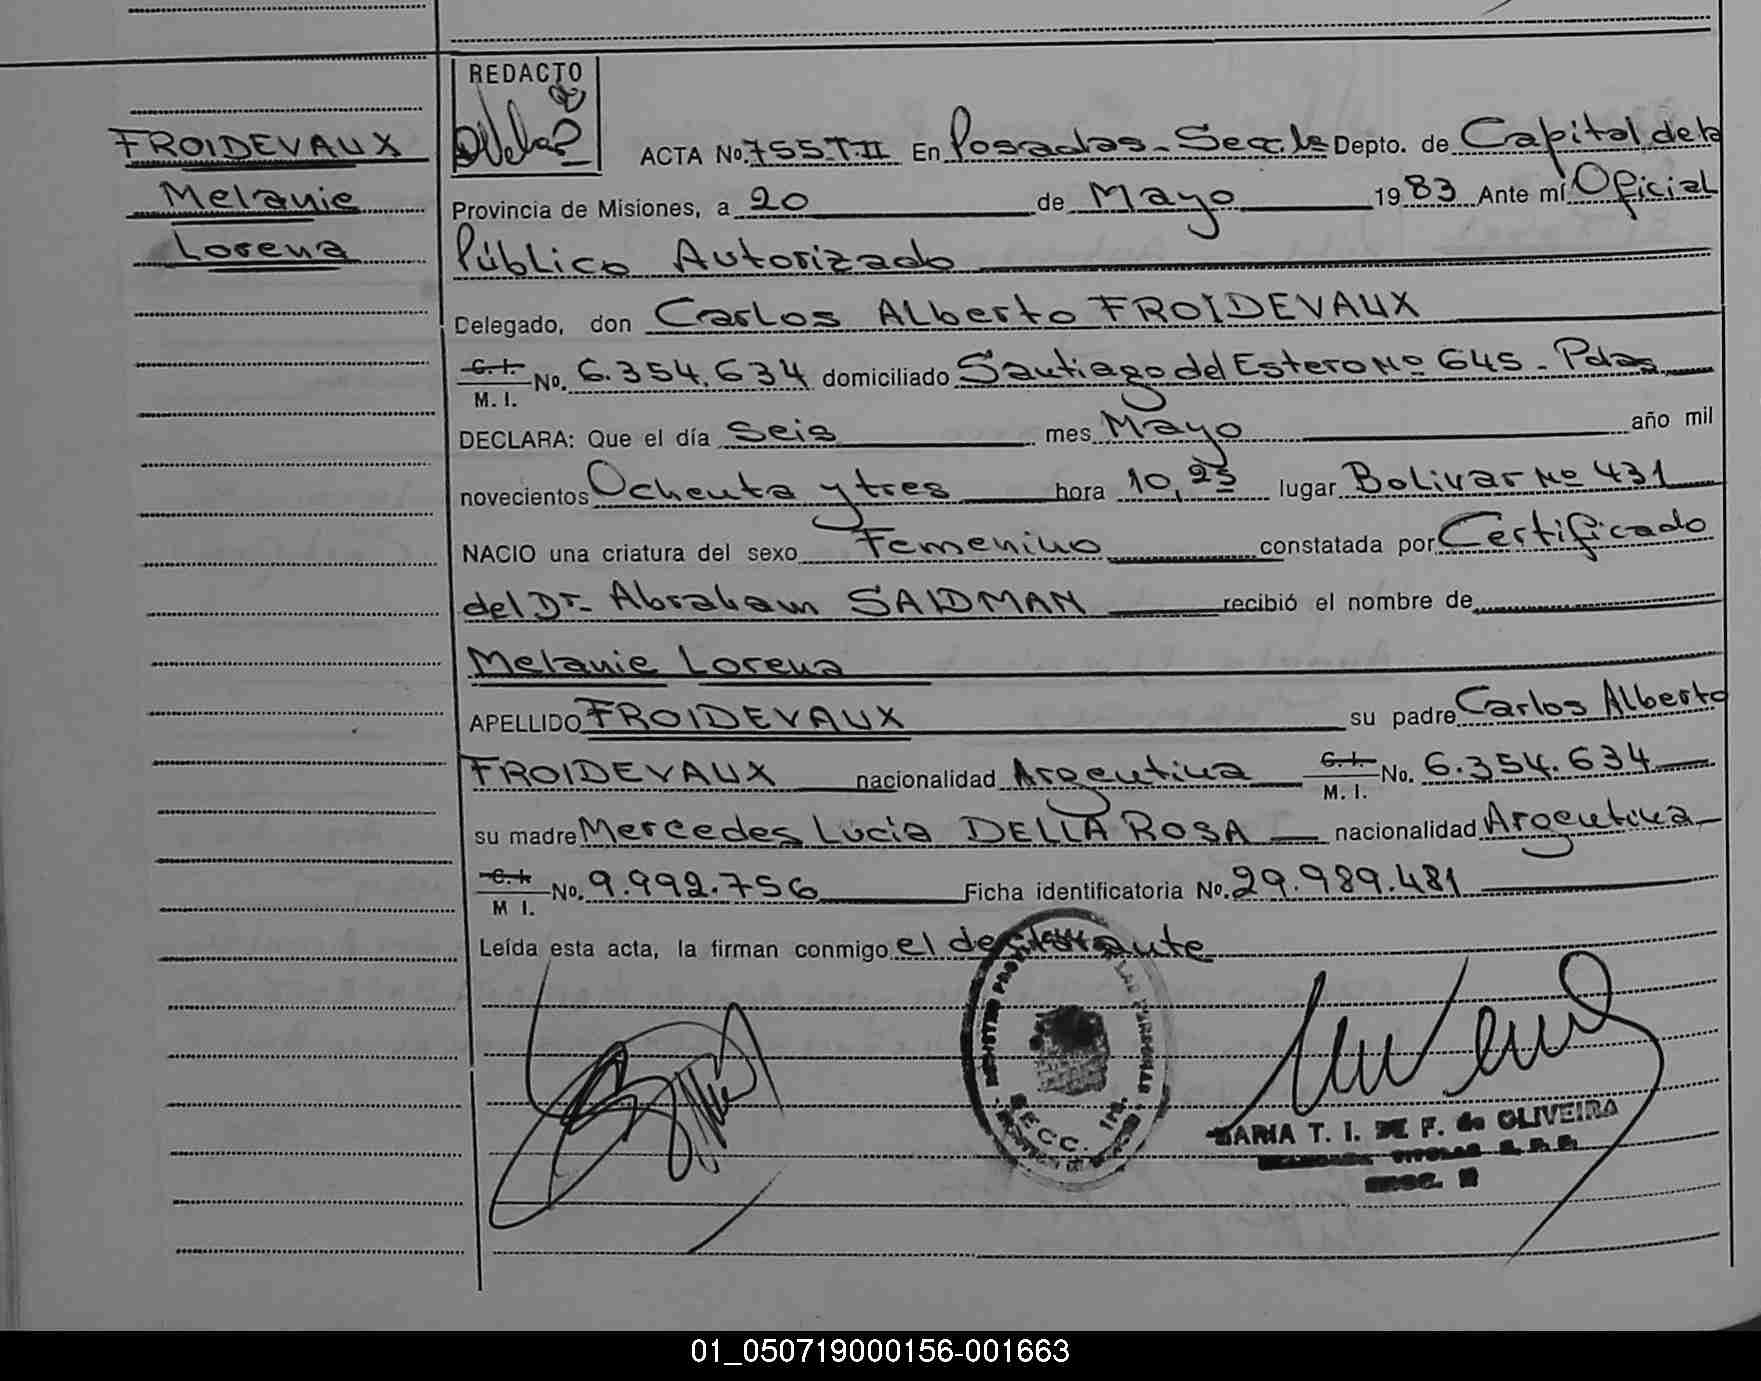 REDACTO
FROIDEVAUX
Melanie
Lorena
ACTA No. 755 T.II En Posadas - Secc. 1a Depto. de Capital de la
Provincia de Misiones, a 20 de Mayo 1983 Ante mí Oficial
Público Autorizado
Delegado, don Carlos Alberto FROIDEVAUX
C. I.
M. I. No. 6.354.634 domiciliado Santiago del Estero Nº 645 - Pdas
DECLARA: Que el día Seis mes Mayo año mil
novecientos Ochenta y tres hora 10,25 lugar Bolivar Nº 431
NACIO una criatura del sexo Femenino constatada por Certificado
del Dr. Abraham SAIDMAN recibió el nombre de
Melanie Lorena
APELLIDO FROIDEVAUX su padre Carlos Alberto
FROIDEVAUX nacionalidad Argentina C. I. M. I. No. 6.354.634
su madre Mercedes Lucia DELLA ROSA nacionalidad Argentina
C. I. M I. No. 9.992.756 Ficha identificatoria No. 29.989.481
Leída esta acta, la firman conmigo el declarante
SECC. 1ra.
MARIA T. I. DE F. de OLIVEIRA
01_050719000156-001663